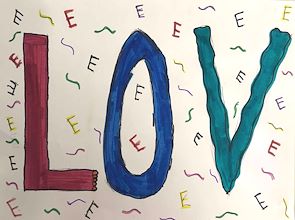 LOV
E E E E E E E E E E E E E E E E E E E E